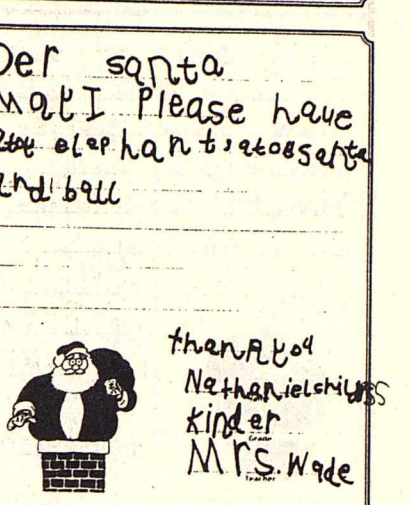 Der santa
may I Please have
a toy elephant, a toy santa
and ball
thank you
Nathaniel childress
kinder
Grade
Mrs. Wade
Teacher